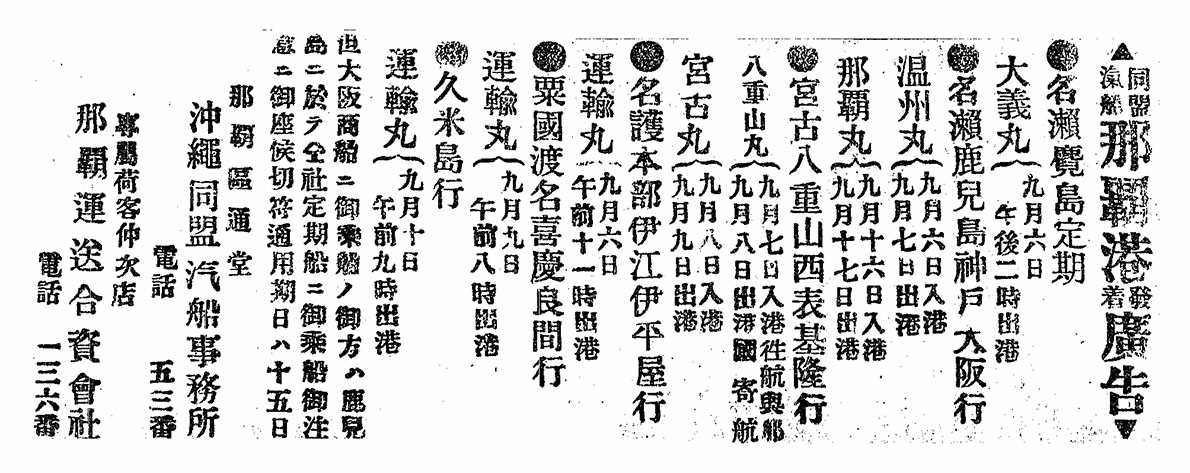 ▲同盟汽船那覇港發着廣告▼
●名瀬鹿島定期
大義丸 九月六日
午後二時出港
●名瀬鹿兒島神戸大阪行
温州丸 九月六日入港
九月七日出港
那覇丸 九月十六日入港
九月十七日出港
●宮古八重山西表基隆行
八重山丸 九月七日入港往航與那
九月八日出港國寄航
宮古丸 九月八日入港
九月九日出港
●名護本部伊江伊平屋行
運輸丸 九月六日
午前十一時出港
●粟國渡名喜慶良間行
運輸丸 九月九日
午前八時出港
●久米島行
運輸丸 九月十日
午前九時出港
但大阪商船ニ御乘船ノ御方ハ鹿兒
島ニ於テ仝社定期船ニ御乘船御注
意ニ御座候切符通用期日ハ十五日
那覇區通堂
沖繩同盟汽船事務所
電話 五三番
專屬荷客仲次店
那覇運送合資會社
電話 一三六番